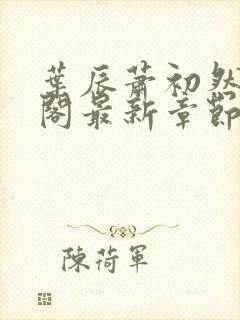 葉辰蕭初然
閣最新章節
陳荷軍